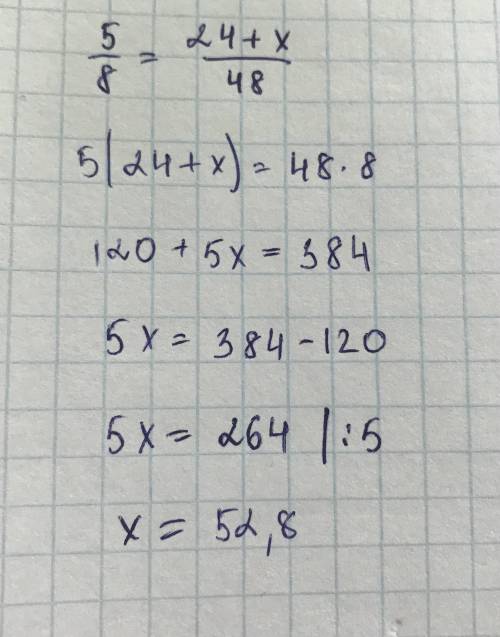 5/8 = 24+x/48
5(24+x) = 48·8
120 + 5x = 384
5x = 384 - 120
5x = 264 |:5
x = 52,8